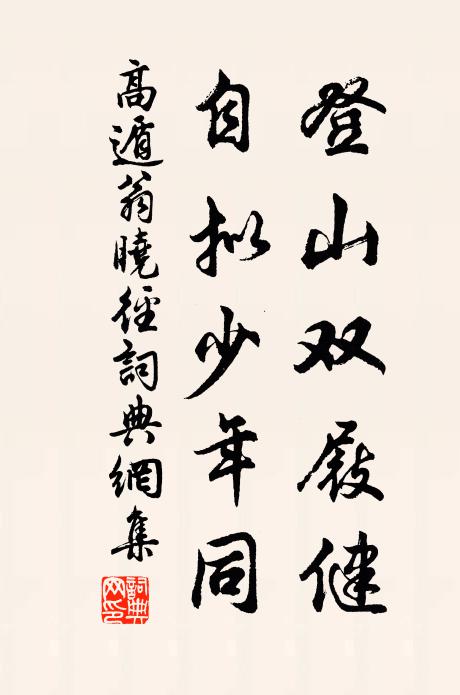 登山双屐健
自拟少年同
高遁翁曉径詞典網集
詞典網印